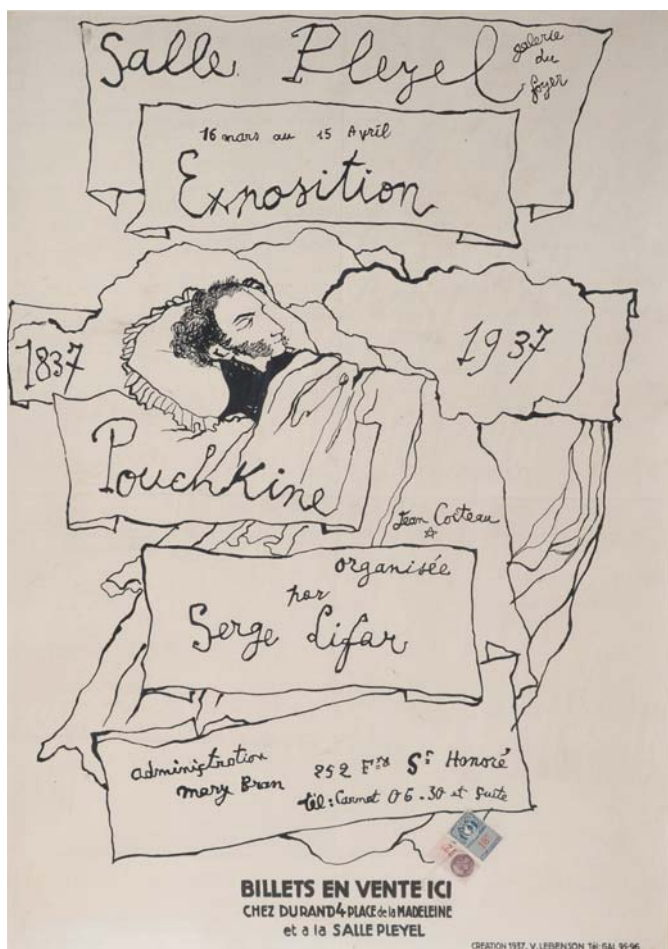 Salle Pleyel
galerie
du
foyer
16 mars au 15 Avril
Exposition
1837
1937
Pouchkine
Jean Cocteau
organisée
par
Serge Lifar
administration
Mary Bran
252 Fg St Honoré
tél: Carnot 06-30 et suite
BILLETS EN VENTE ICI
CHEZ DURAND 4 PLACE de la MADELEINE
et a la SALLE PLEYEL
CREATION 1937. V. LEBENSON. Tél: GAL. 95-96